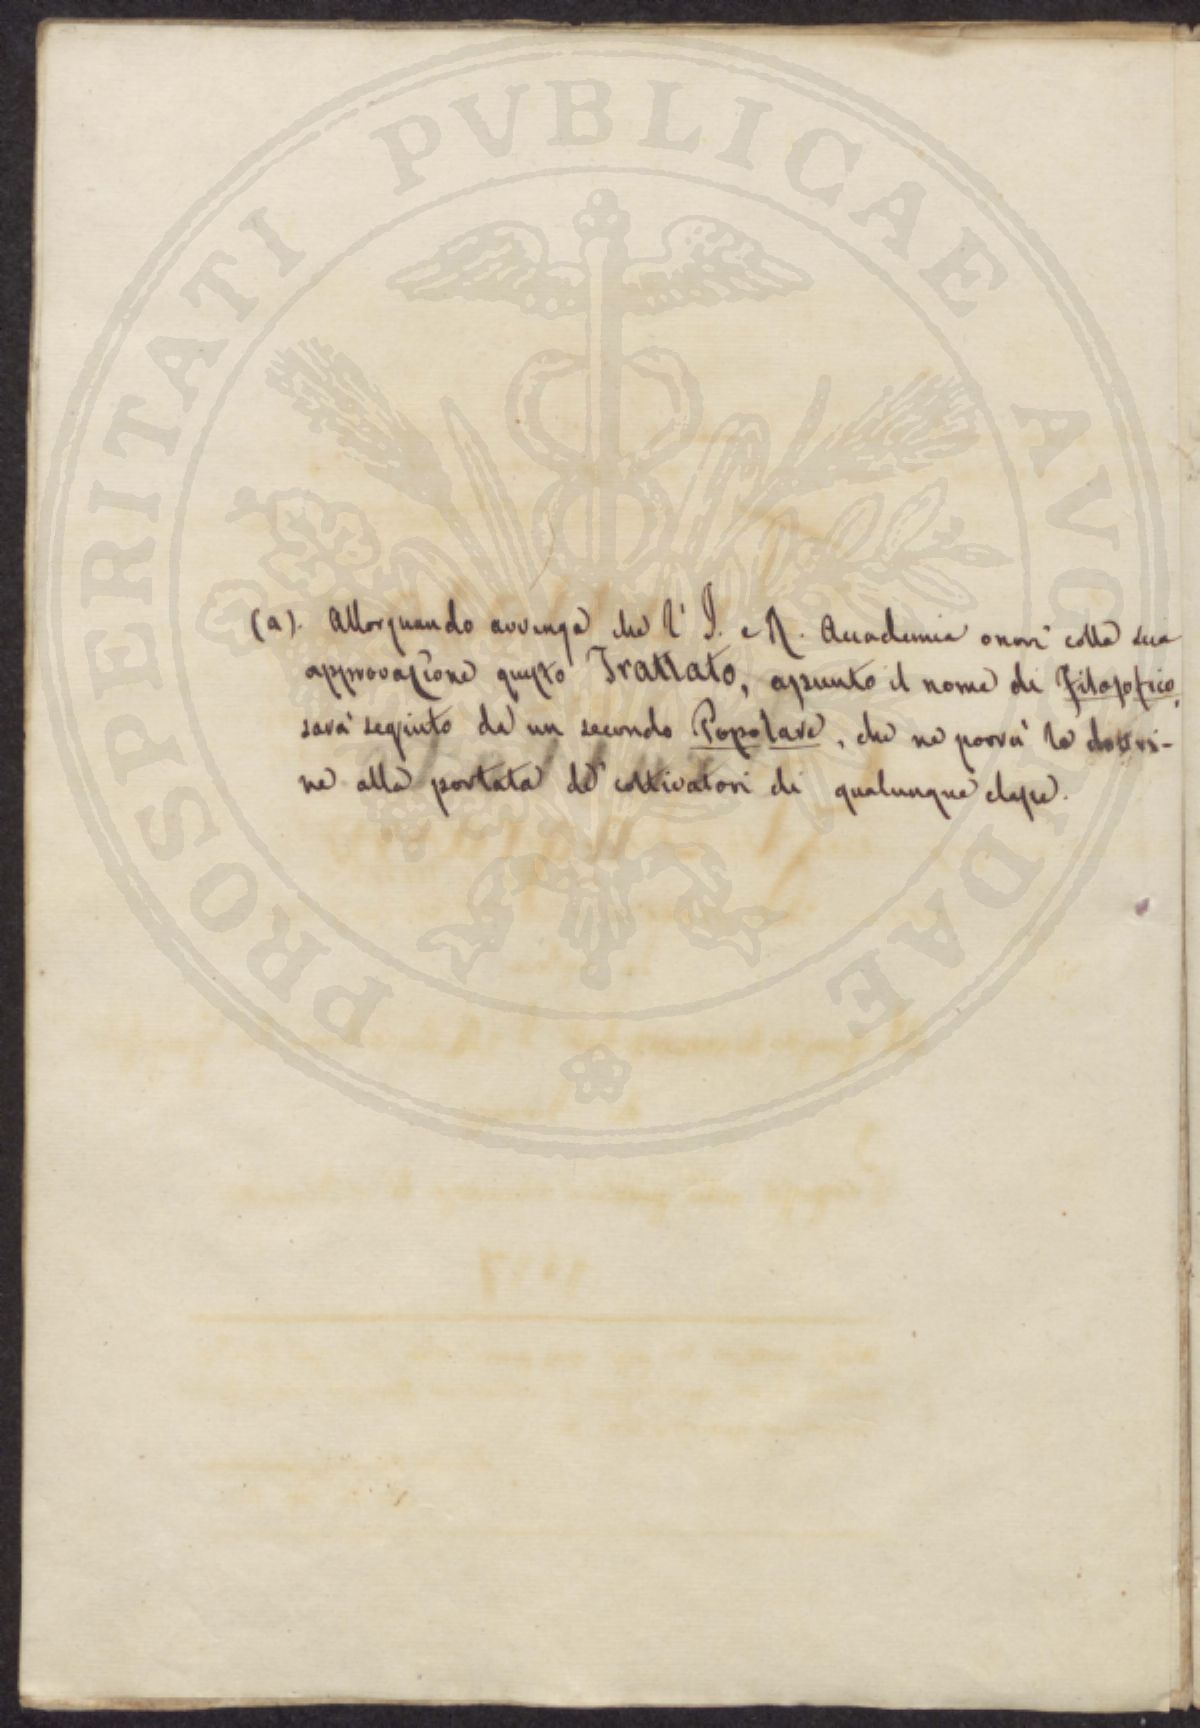 PROSPERITATI PUBLICAE AVGENDAE
(a). Allorquando avvenga che l' I. e R. Accademia onori colla sua
approvazione questo Trattato, assunto il nome di Filosofico,
sarà seguito da un secondo Popolare, che ne porrà le dottri-
ne alla portata de' coltivatori di qualunque classe.